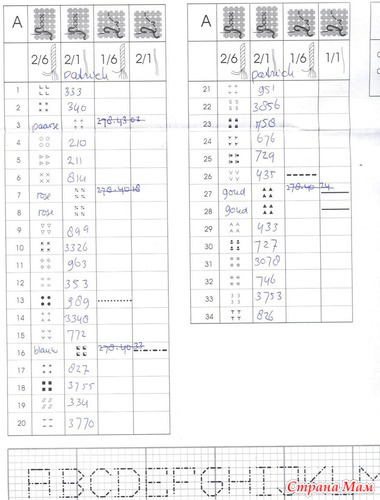 A
2/6 2/1 1/6 2/1
patrich
1 333
2 340
3 paarse 278.4307
4 210
5 211
6 814
7 rose 278.4018
8 rose
9 899
10 3326
11 963
12 353
13 989
14 3348
15 772
16 blauw 278.4037
17 827
18 3755
19 334
20 3770
A
2/6 2/1 1/6 1/1
patrich
21 951
22 3856
23 758
24 676
25 729
26 435
27 goud 278.40 24
28 goud
29 433
30 727
31 3078
32 746
33 3753
34 826
ABCDEFGHIJKLM
Страна Мам